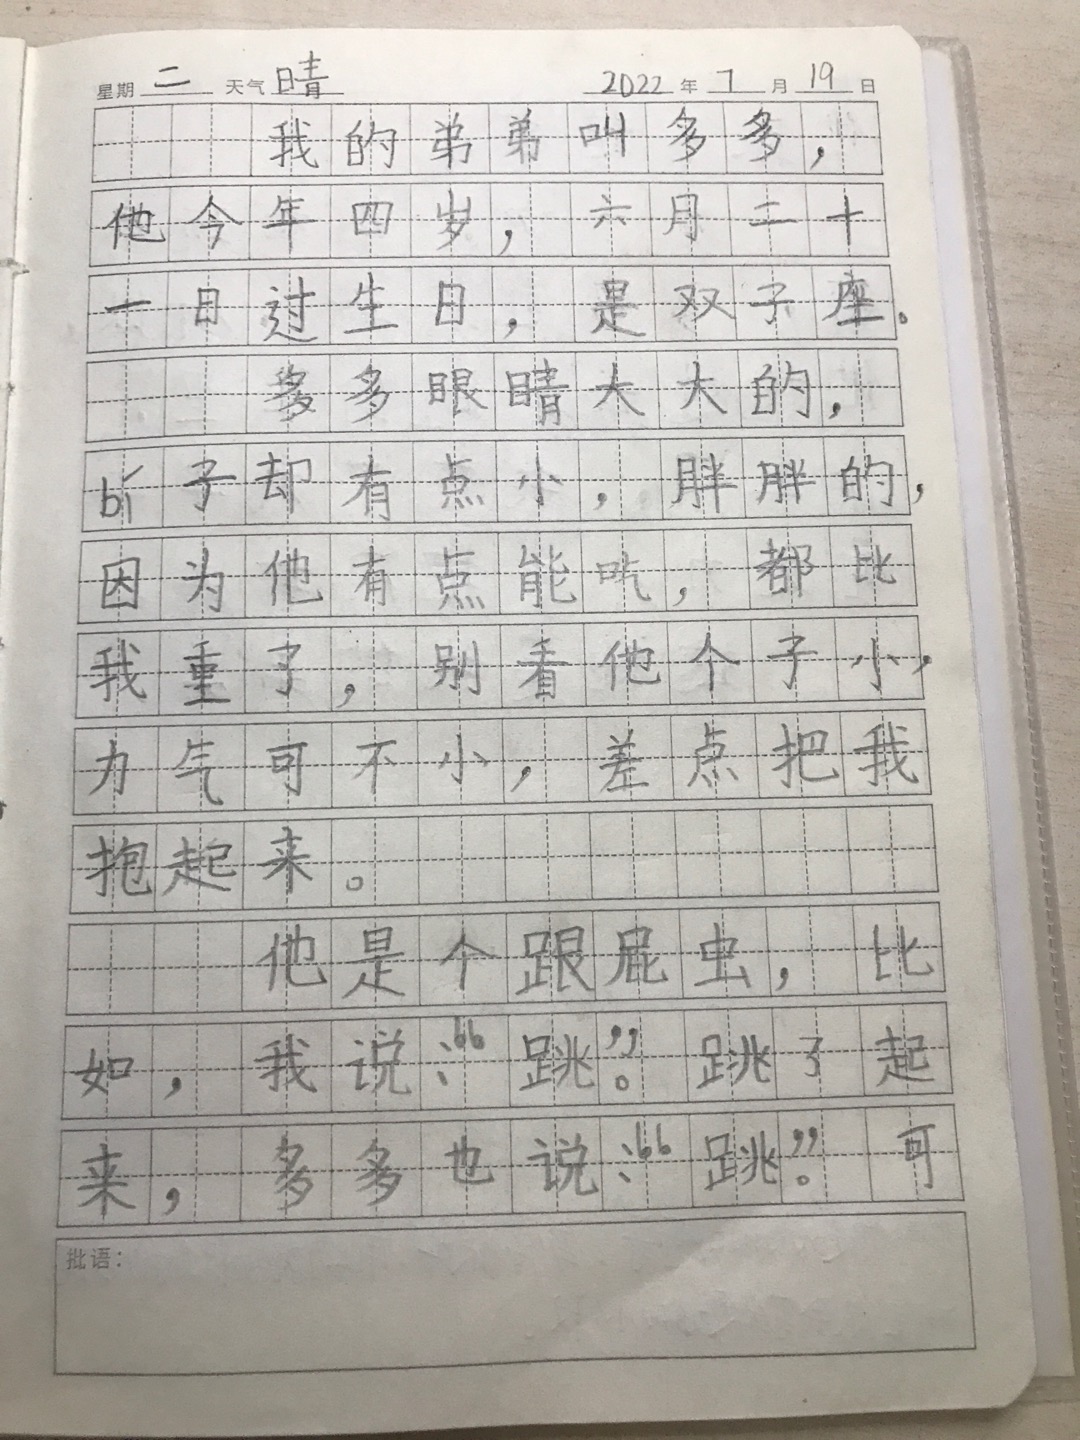 星期 二 天气 晴 2022 年 7 月 19 日
我的弟弟叫多多，
他今年四岁，六月二十
一日过生日，是双子座。
多多眼睛大大的，
bí子却有点小，胖胖的，
因为他有点能吃，都比
我重了，别看他个子小，
力气可不小，差点把我
抱起来。
他是个跟屁虫，比
如，我说：“跳”。跳了起
来，多多也说：“跳”。可
批语：